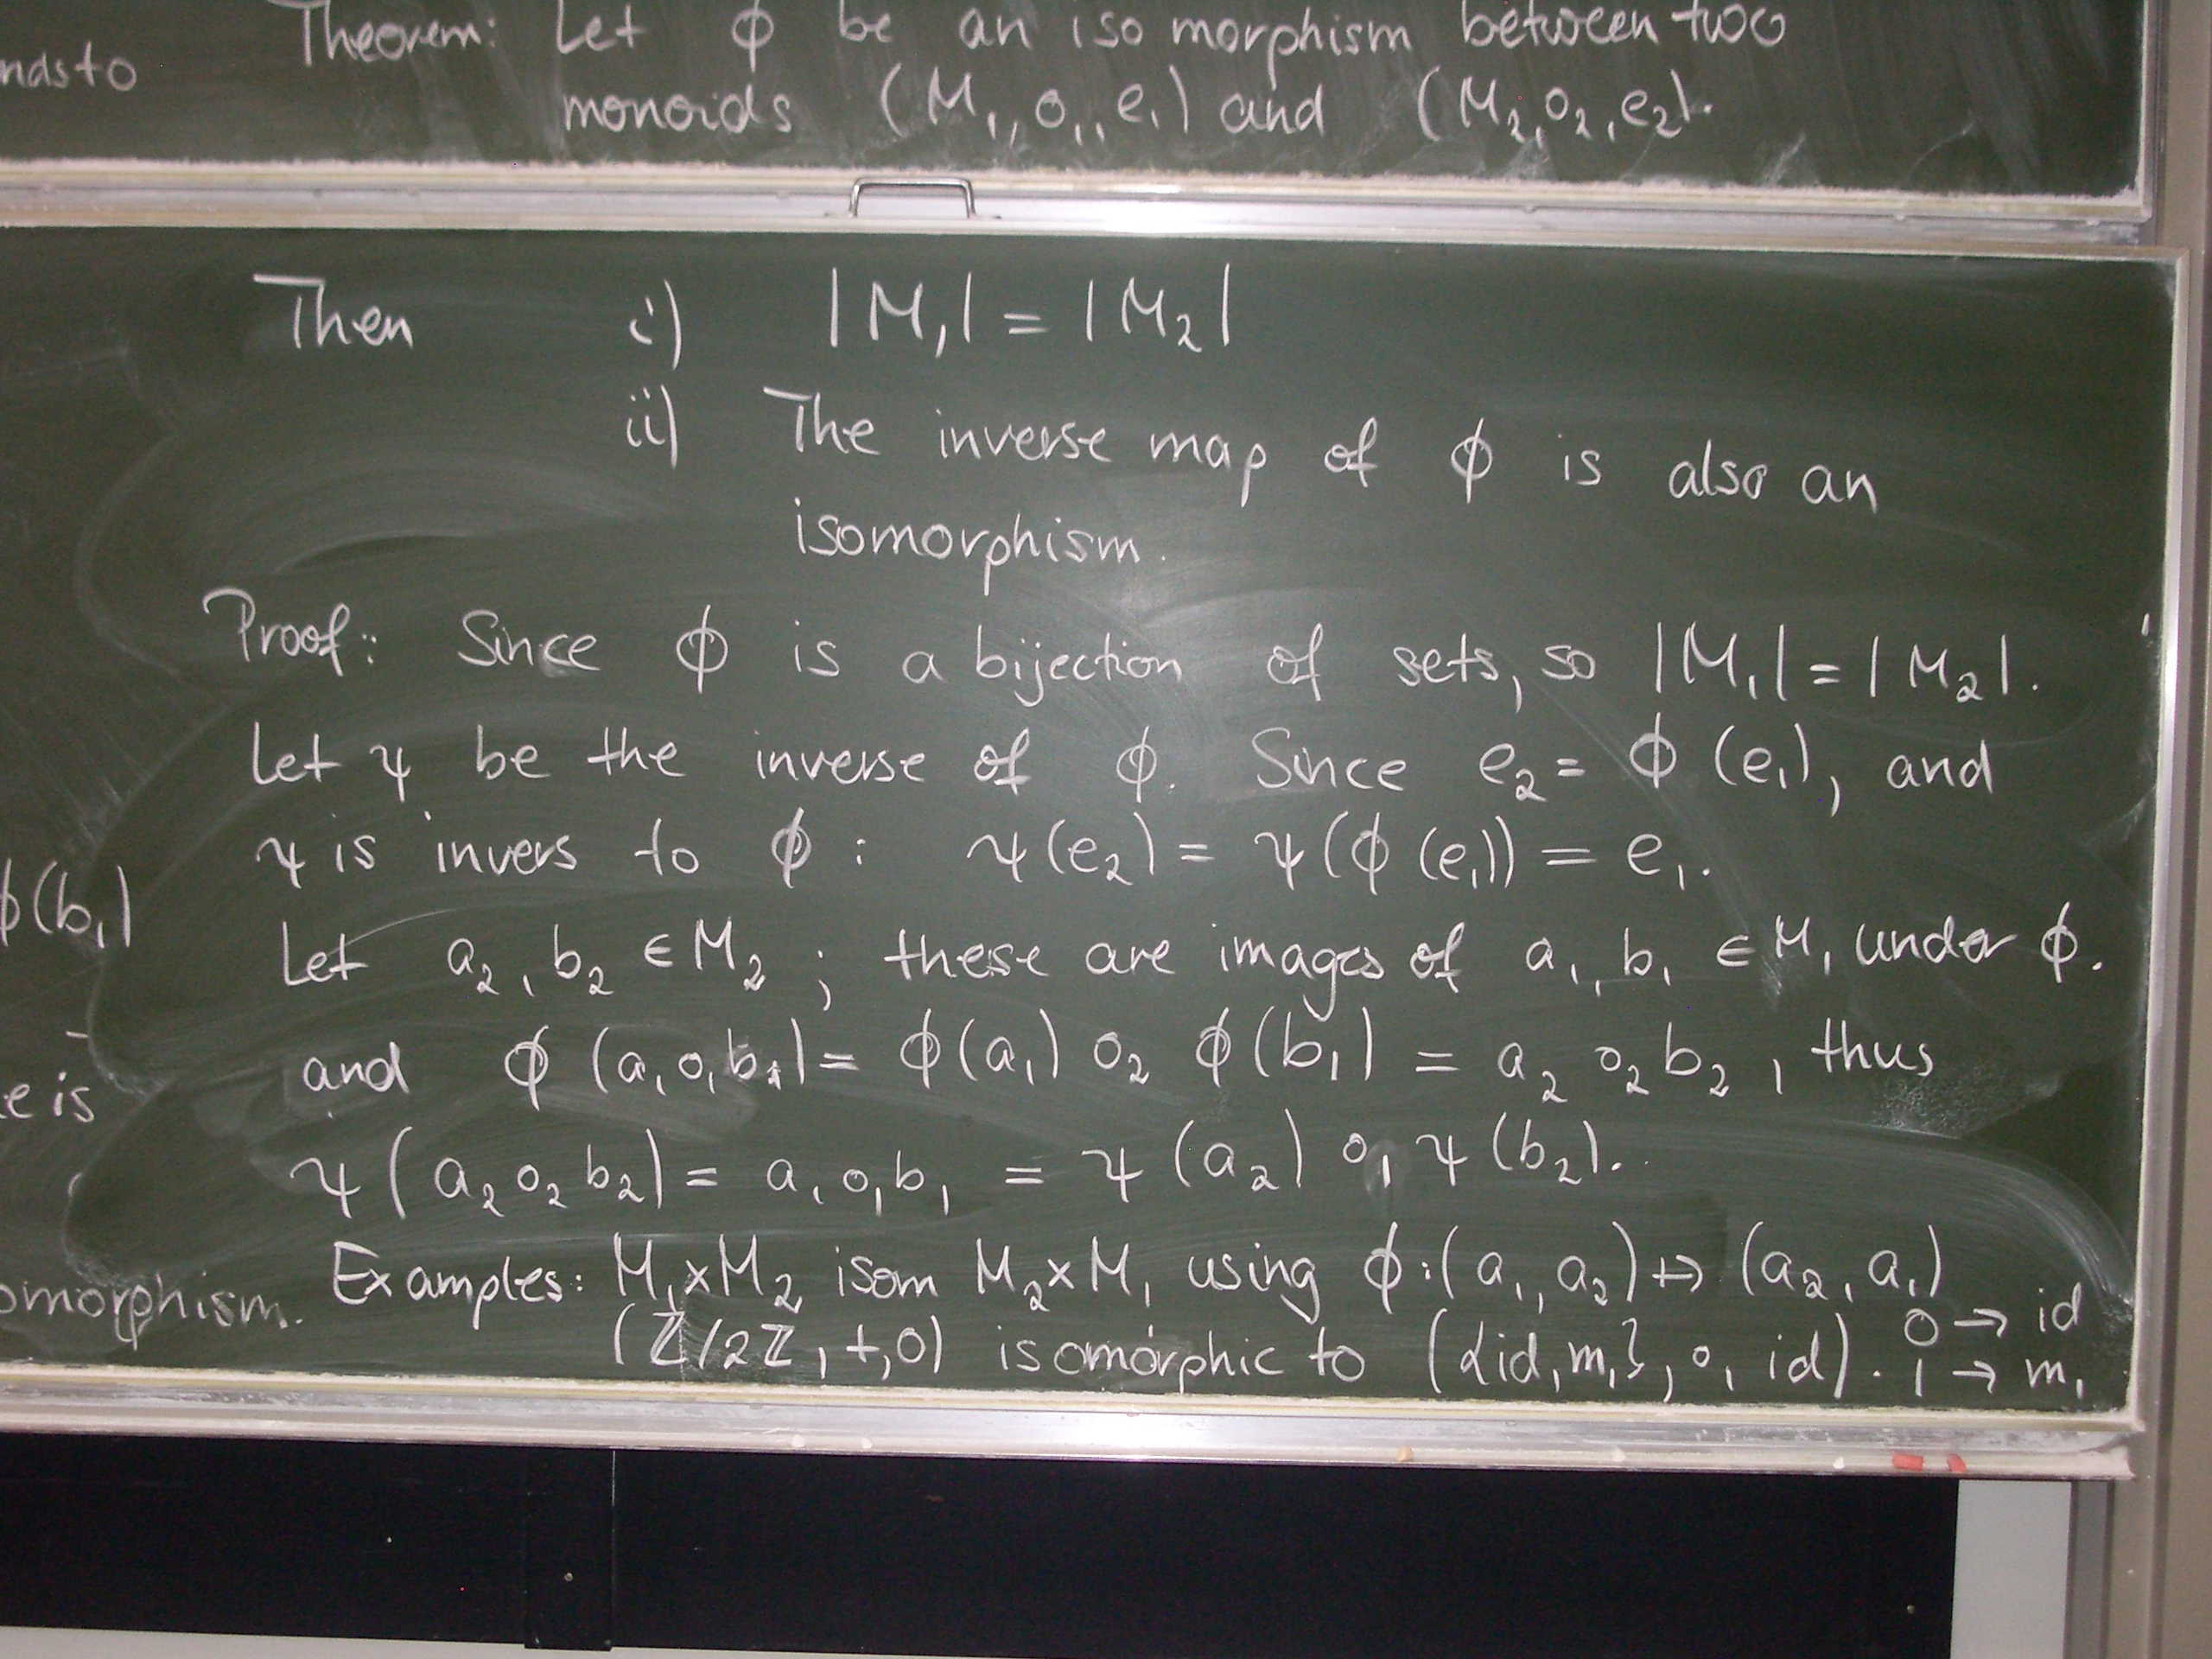 nds to
Theorem: Let ϕ be an isomorphism between two
monoids (M₁, o₁, e₁) and (M₂, o₂, e₂).
Then i) |M₁| = |M₂|
ii) The inverse map of ϕ is also an
isomorphism.
Proof: Since ϕ is a bijection of sets, so |M₁| = |M₂|.
Let ψ be the inverse of ϕ. Since e₂ = ϕ(e₁), and
ψ is invers to ϕ: ψ(e₂) = ψ(ϕ(e₁)) = e₁.
ϕ(b₁)
Let a₂, b₂ ∈ M₂; these are images of a₁, b₁ ∈ M₁ under ϕ.
and ϕ(a₁ o₁ b₁) = ϕ(a₁) o₂ ϕ(b₁) = a₂ o₂ b₂, thus
e is
ψ(a₂ o₂ b₂) = a₁ o₁ b₁ = ψ(a₂) o₁ ψ(b₂).
omorphism.
Examples: M₁ × M₂ isom M₂ × M₁ using ϕ: (a₁, a₂) ↦ (a₂, a₁)
0 → id
(ℤ/2ℤ, +, 0) isomorphic to ({id, m₁}, o, id). 1 → m₁